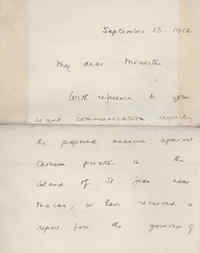 September 13. 1912
My dear Minister
With reference to your
recent communication regarding
the proposed measures against
Chinese pirates in the
island of St John near
Macao, we have received a
report from the governor of